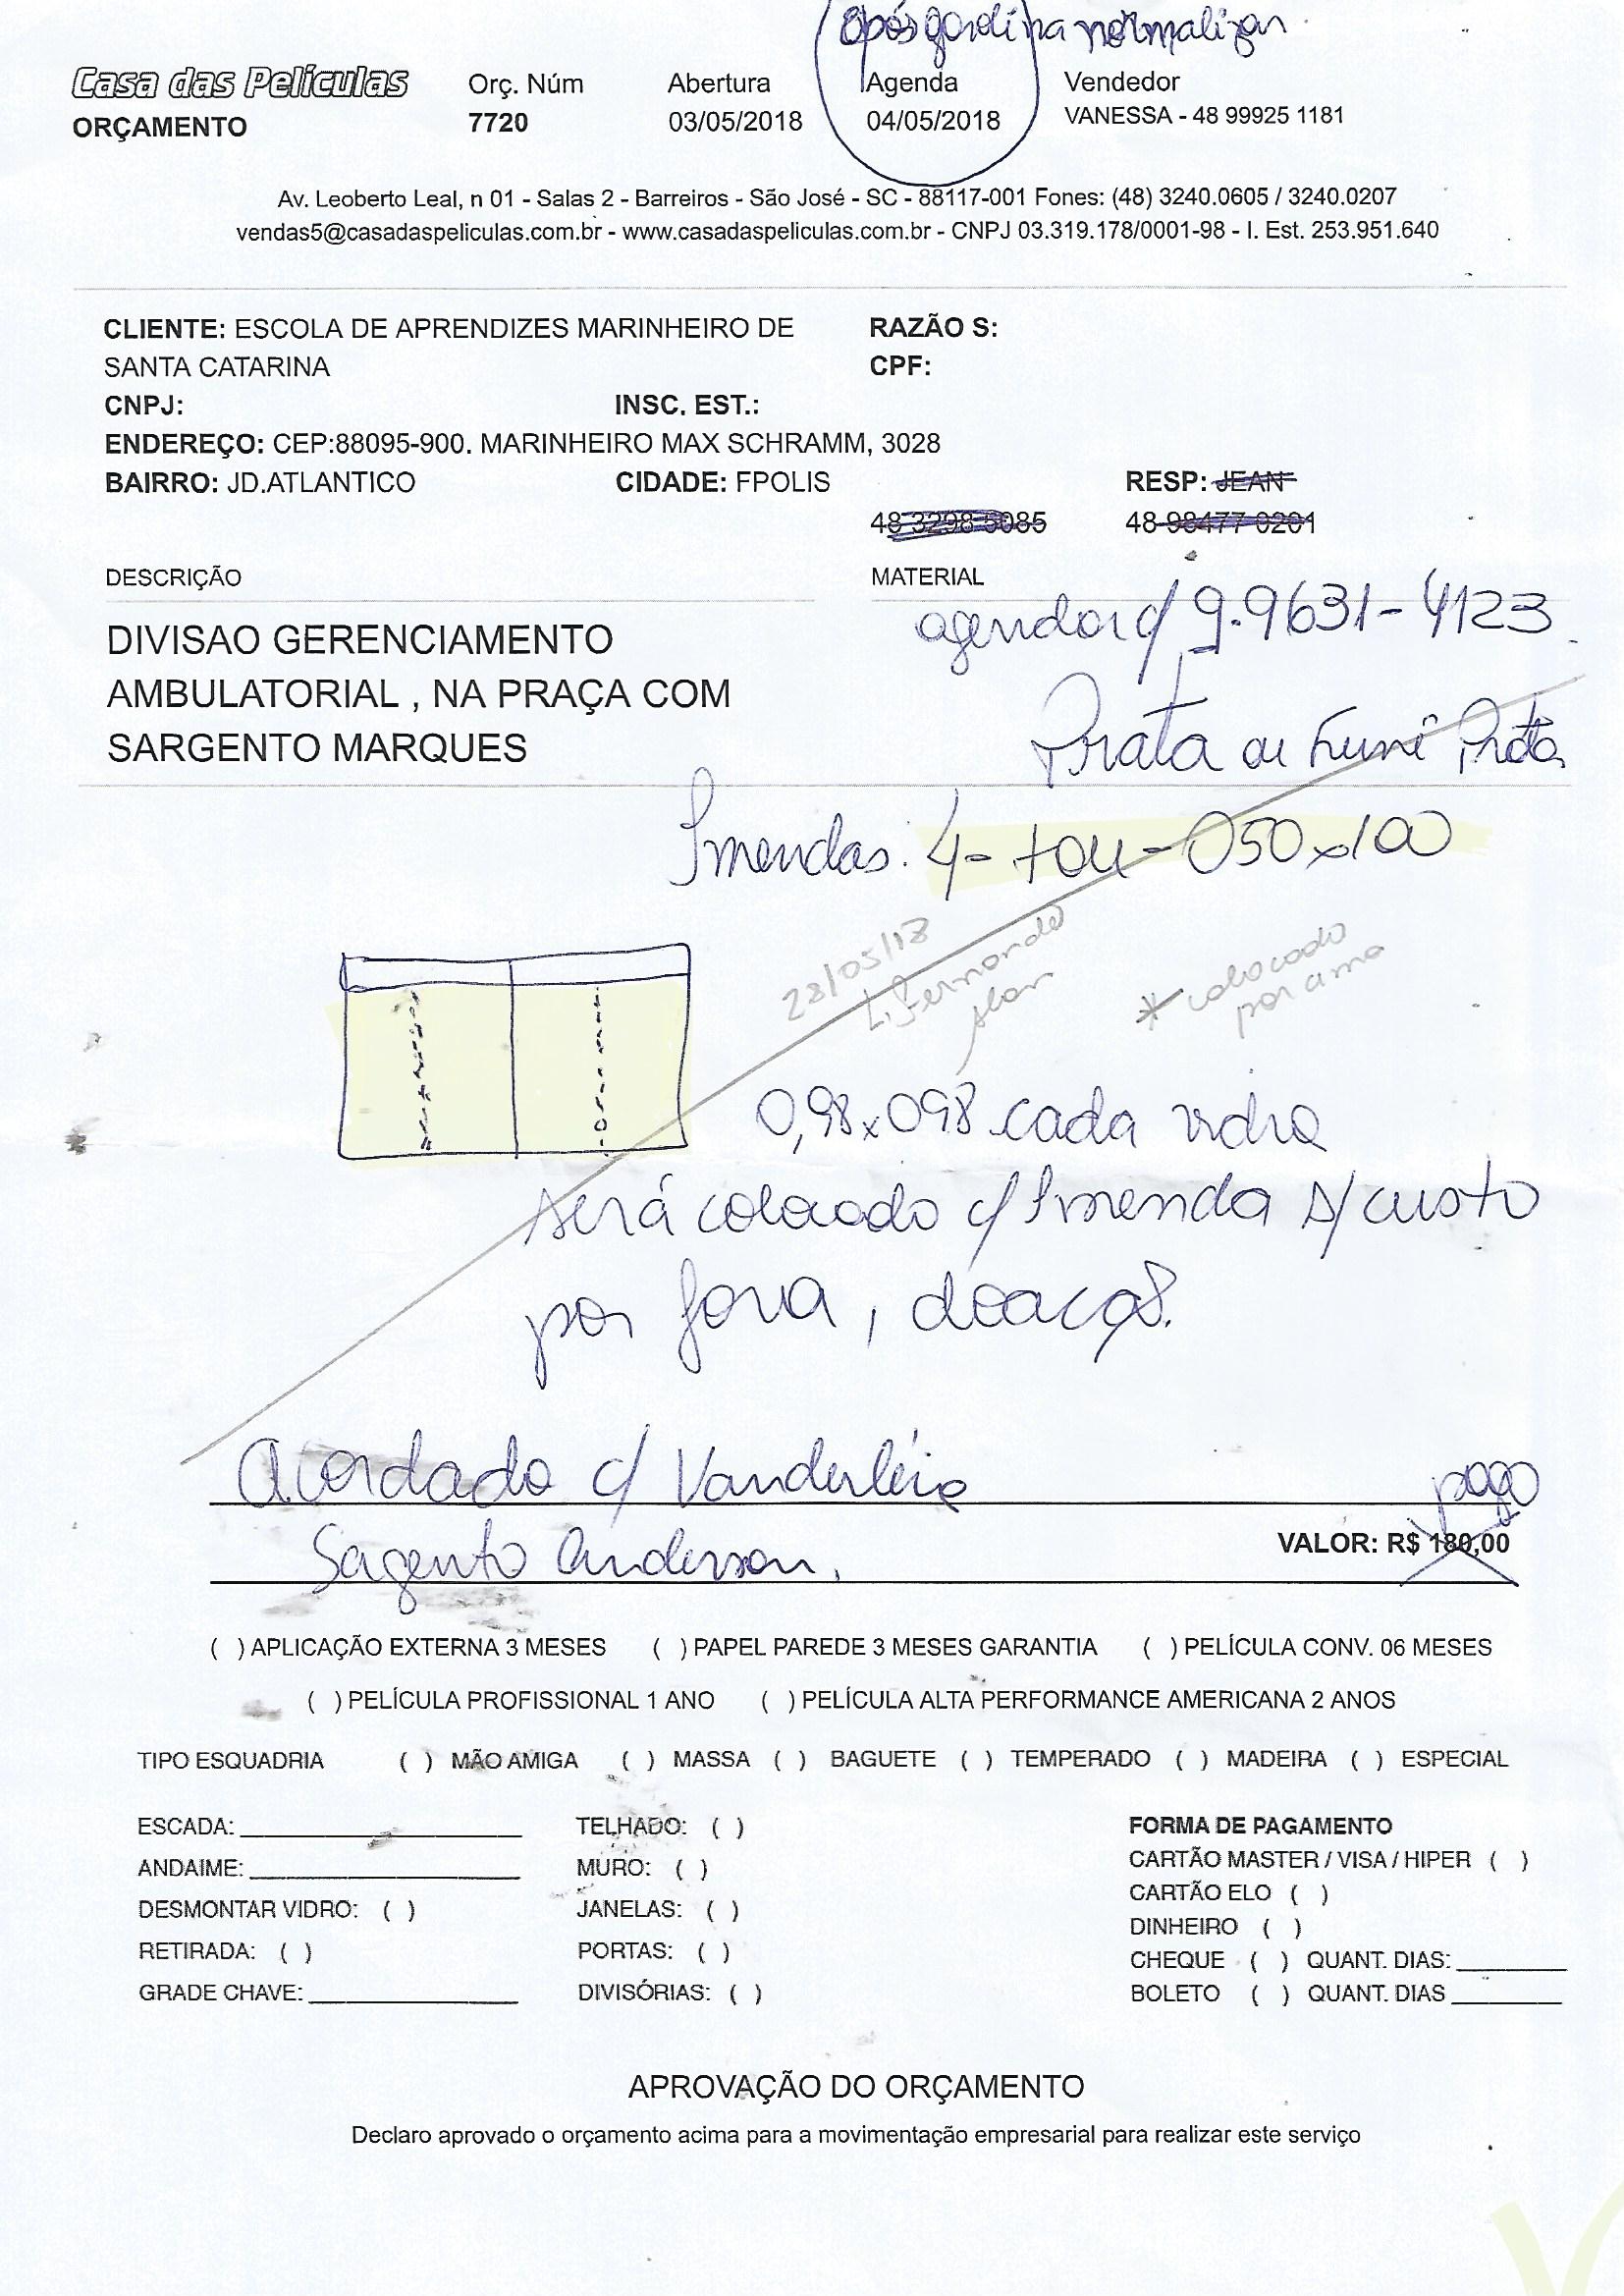 após gasolina normalizar
Casa das Películas
ORÇAMENTO
Orç. Núm
7720
Abertura
03/05/2018
Agenda
04/05/2018
Vendedor
VANESSA - 48 99925 1181
Av. Leoberto Leal, n 01 - Salas 2 - Barreiros - São José - SC - 88117-001 Fones: (48) 3240.0605 / 3240.0207
vendas5@casadaspeliculas.com.br - www.casadaspeliculas.com.br - CNPJ 03.319.178/0001-98 - I. Est. 253.951.640
CLIENTE: ESCOLA DE APRENDIZES MARINHEIRO DE
SANTA CATARINA
RAZÃO S:
CPF:
CNPJ: INSC. EST.:
ENDEREÇO: CEP:88095-900. MARINHEIRO MAX SCHRAMM, 3028
BAIRRO: JD.ATLANTICO CIDADE: FPOLIS RESP: JEAN
48 3298 5085 48-98477 0201
DESCRIÇÃO MATERIAL
agendar c/ 9.9631-4123
DIVISAO GERENCIAMENTO
AMBULATORIAL , NA PRAÇA COM
SARGENTO MARQUES
Prata ou Fumê Preto
Imendas: 4- tou - 050x100
28/05/18
Fernando
* colocado
por cima
0,98x098 cada vidro
será colocado c/ Imenda s/ custo
por fora, doação.
Acordado c/ Vanderléia
pago
Sagento Anderson.
VALOR: R$ 180,00
( ) APLICAÇÃO EXTERNA 3 MESES ( ) PAPEL PAREDE 3 MESES GARANTIA ( ) PELÍCULA CONV. 06 MESES
( ) PELÍCULA PROFISSIONAL 1 ANO ( ) PELÍCULA ALTA PERFORMANCE AMERICANA 2 ANOS
TIPO ESQUADRIA ( ) MÃO AMIGA ( ) MASSA ( ) BAGUETE ( ) TEMPERADO ( ) MADEIRA ( ) ESPECIAL
ESCADA: ____________
ANDAIME: ____________
DESMONTAR VIDRO: ( )
RETIRADA: ( )
GRADE CHAVE: ____________
TELHADO: ( )
MURO: ( )
JANELAS: ( )
PORTAS: ( )
DIVISÓRIAS: ( )
FORMA DE PAGAMENTO
CARTÃO MASTER / VISA / HIPER ( )
CARTÃO ELO ( )
DINHEIRO ( )
CHEQUE ( ) QUANT. DIAS: ________
BOLETO ( ) QUANT. DIAS ________
APROVAÇÃO DO ORÇAMENTO
Declaro aprovado o orçamento acima para a movimentação empresarial para realizar este serviço